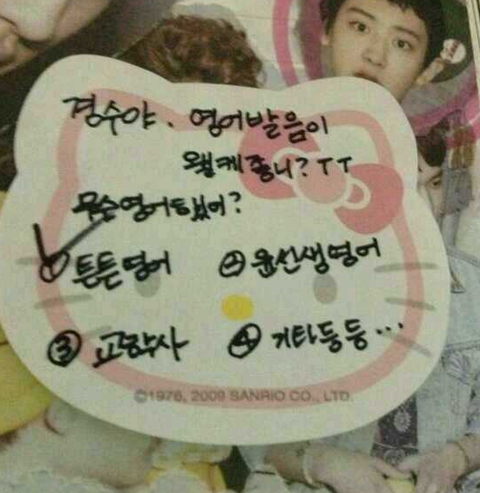 경수야. 영어발음이
왤케좋니? TT
무슨영어했어?
① 튼튼영어 ② 윤선생영어
③ 교학사 ④ 기타등등…
©1976, 2009 SANRIO CO., LTD.